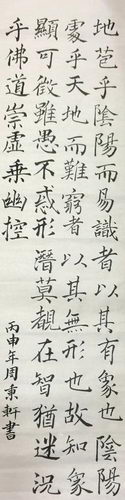 地苞乎陰陽而易識者以其有象也陰陽
處乎天地而難窮者以其無形也故知象
顯可徵雖愚不惑形潛莫覩在智猶迷況
乎佛道崇虛乘幽控
丙申年周東軒書